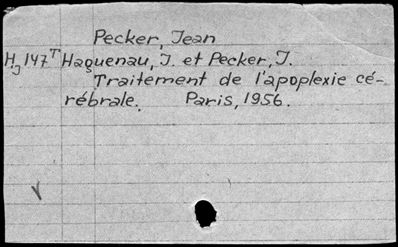 Pecker, Jean
Hj 147T Haguenau, J. et Pecker, J.
Traitement de l'apoplexie cé-
rébrale. Paris, 1956.